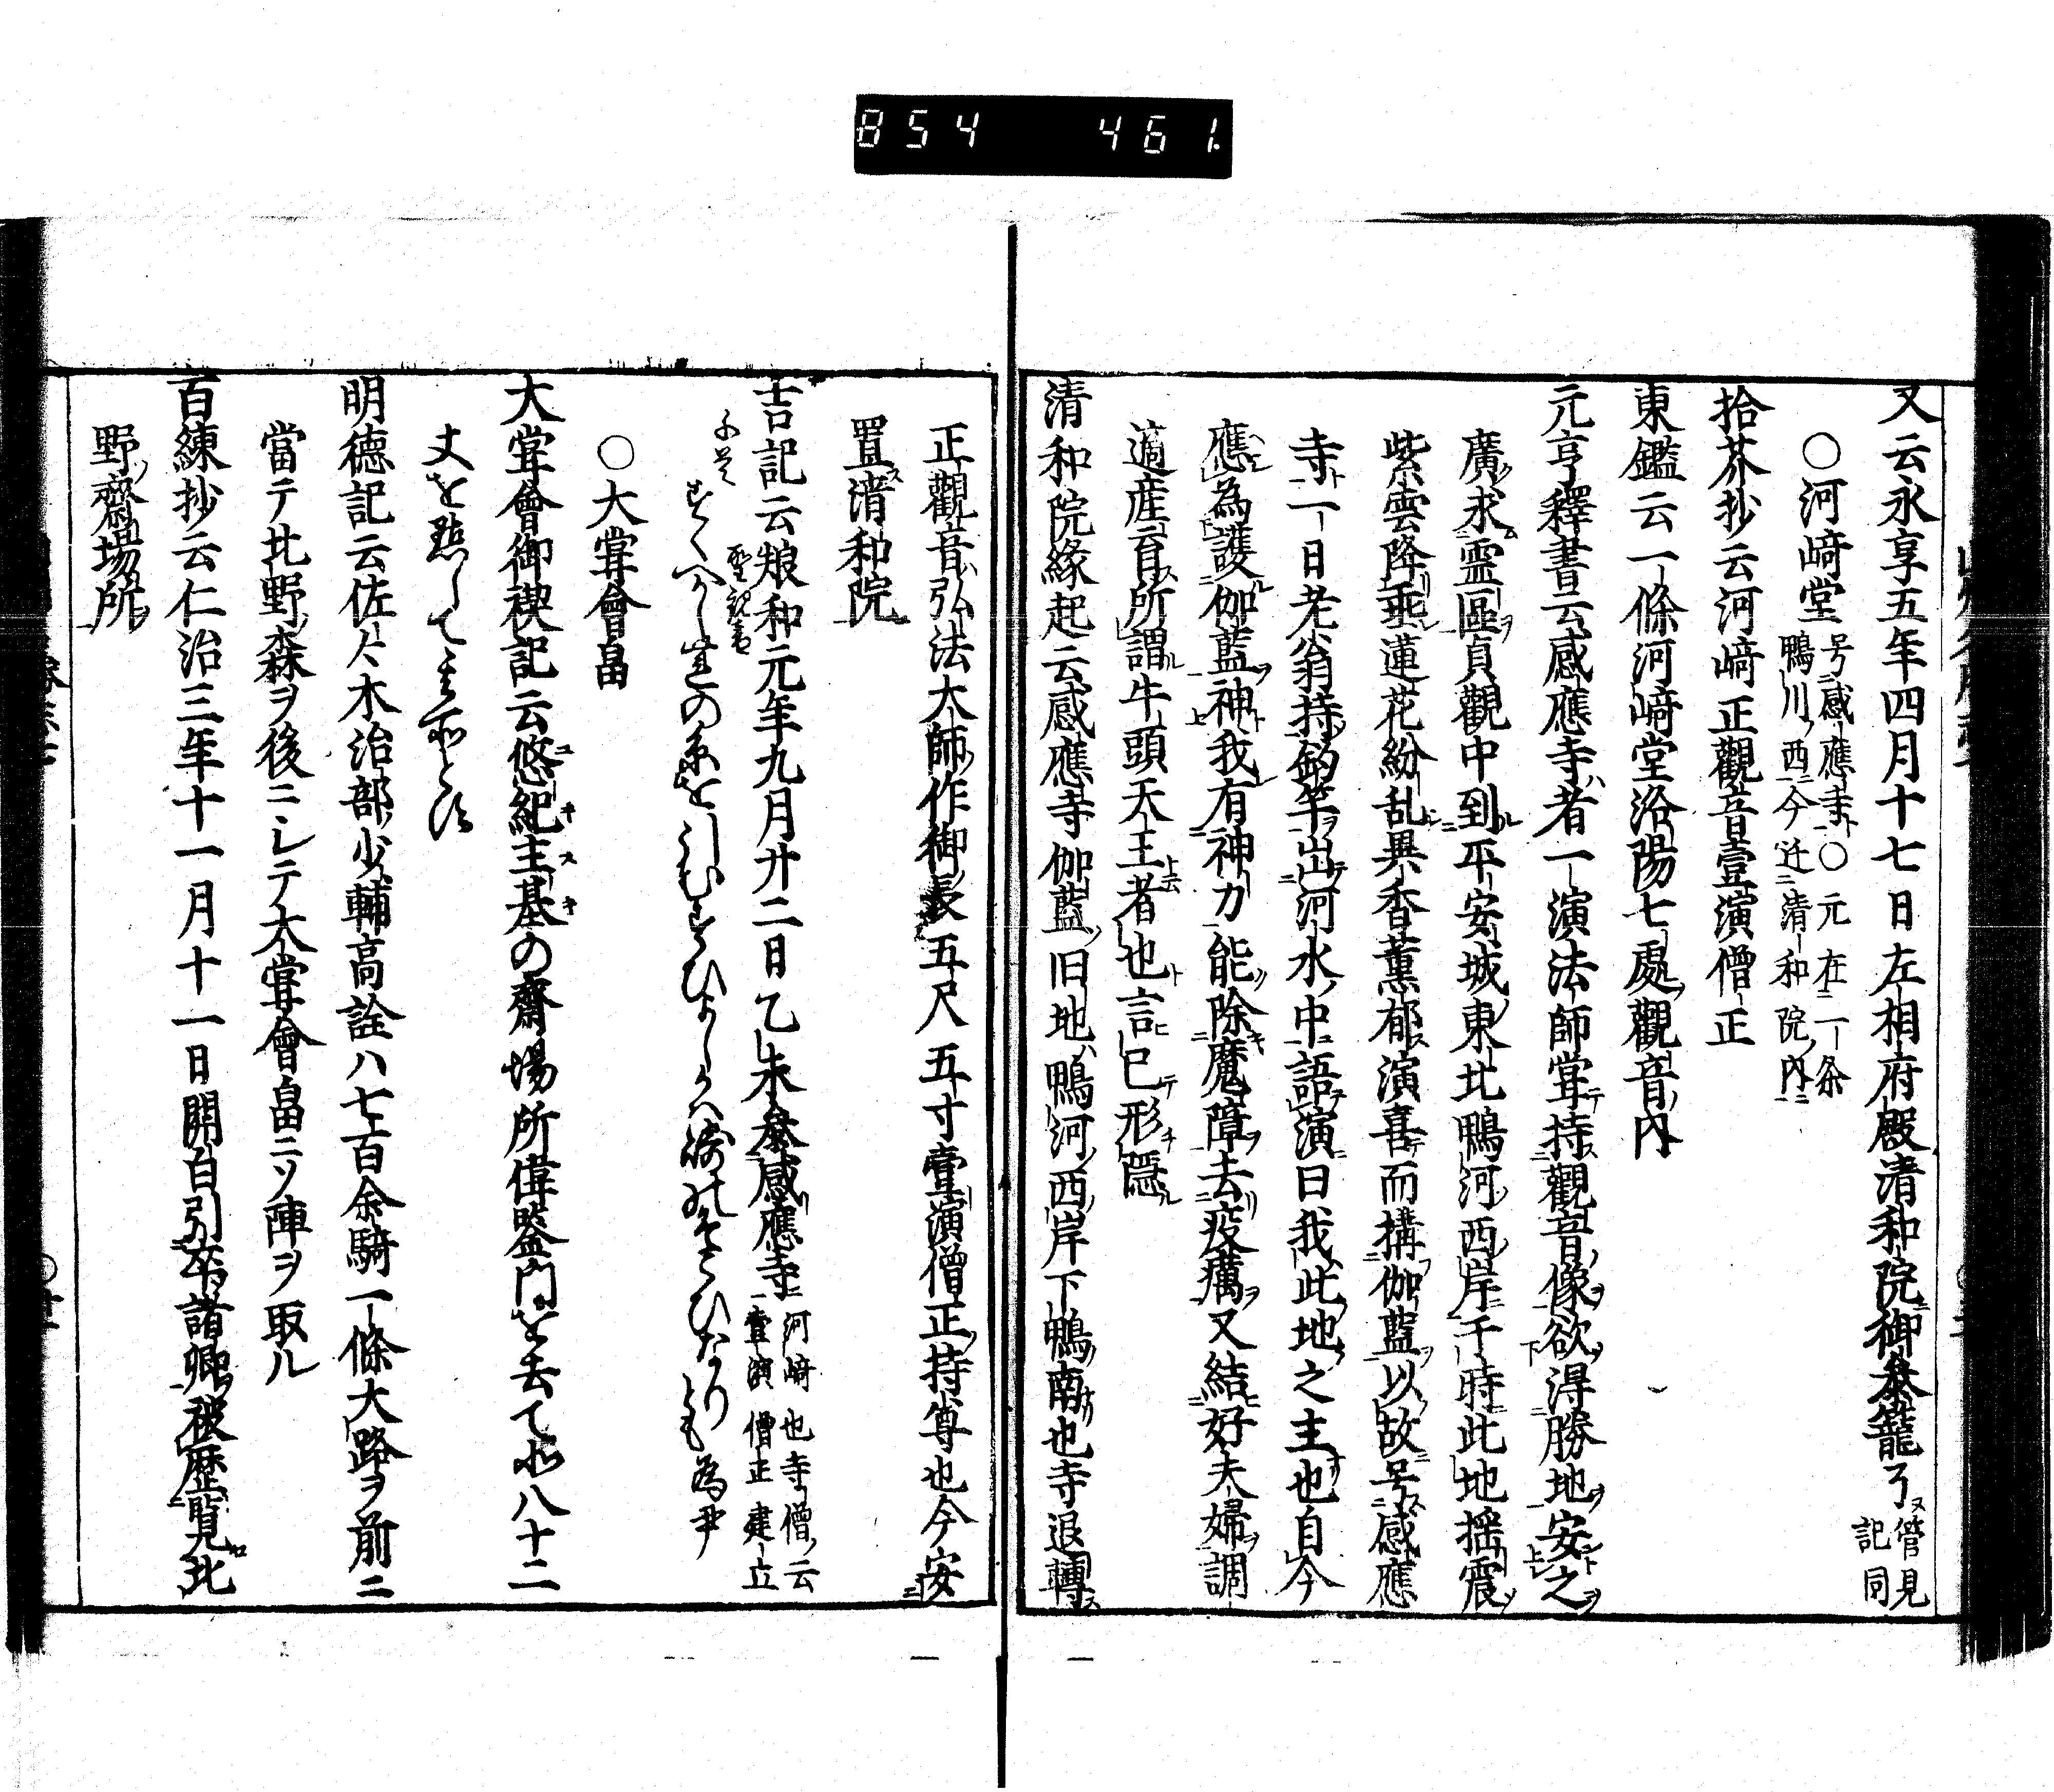 854 461.
又云永享五年四月十七日左相府殿清和院御参籠了又管見記同
○河﨑堂号感應寺○元在二一条鴨川ノ西今迁清和院ノ内
拾芥抄云河﨑正觀音壹演僧正
東鑑云一條河﨑堂洛陽七處觀音ノ内
元亨釋書云感應寺者一演法師甞持觀音像欲淂勝地安之
廣求霊區貞觀中到平安城東北鴨河西岸于時此地揺震
紫雲降垂蓮花紛乱異香薫郁演喜而搆伽藍以故号感應
寺一日老翁持釣竿出河水中語演曰我此地之主也自今
應為護伽藍神我有神力能除魔障去疫癘又結好夫婦調
適産育所謂牛頭天王者也言已形隠
清和院緣起云感應寺伽藍旧地鴨河西岸下鴨南也寺退轉
正觀音弘法大師作御長五尺五寸壹演僧正持尊也今安
置清和院
吉記云養和元年九月廿二日乙未参感應寺河﨑也寺僧云壹演僧正建立
○大甞會畠
大甞會御禊記云悠紀主基の齋場所偉鑒門を去て北八十二
丈を點して
明德記云佐々木治部少輔高詮ハ七百余騎一條大路ヲ前ニ
當テ北野森ヲ後ニシテ大甞會畠ニソ陣ヲ取ル
百練抄云仁治三年十一月十一日開白引卒諸卿被歴覧北
野齋場所